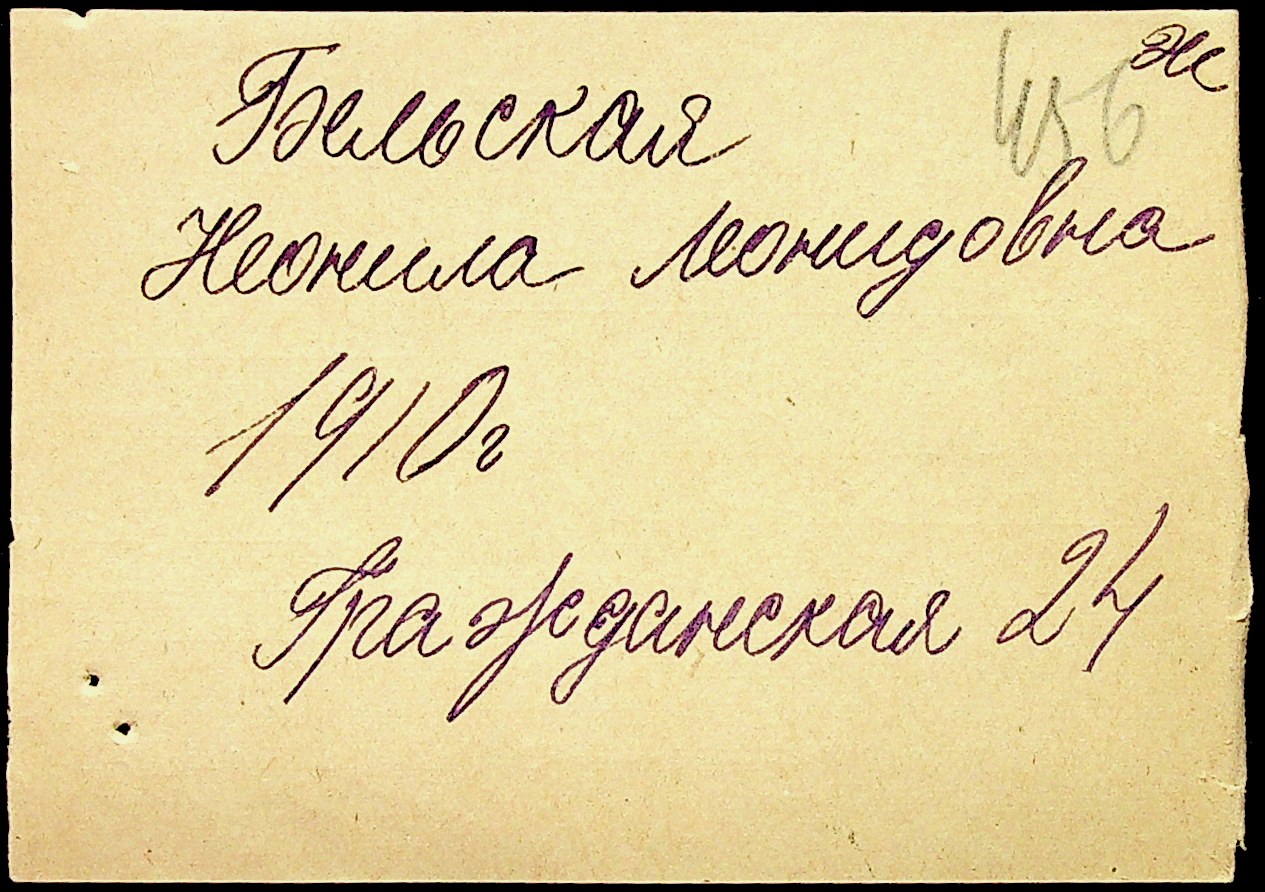 ж
456
Бельская
Неонила Леонидовна
1910г
Гражданская 24